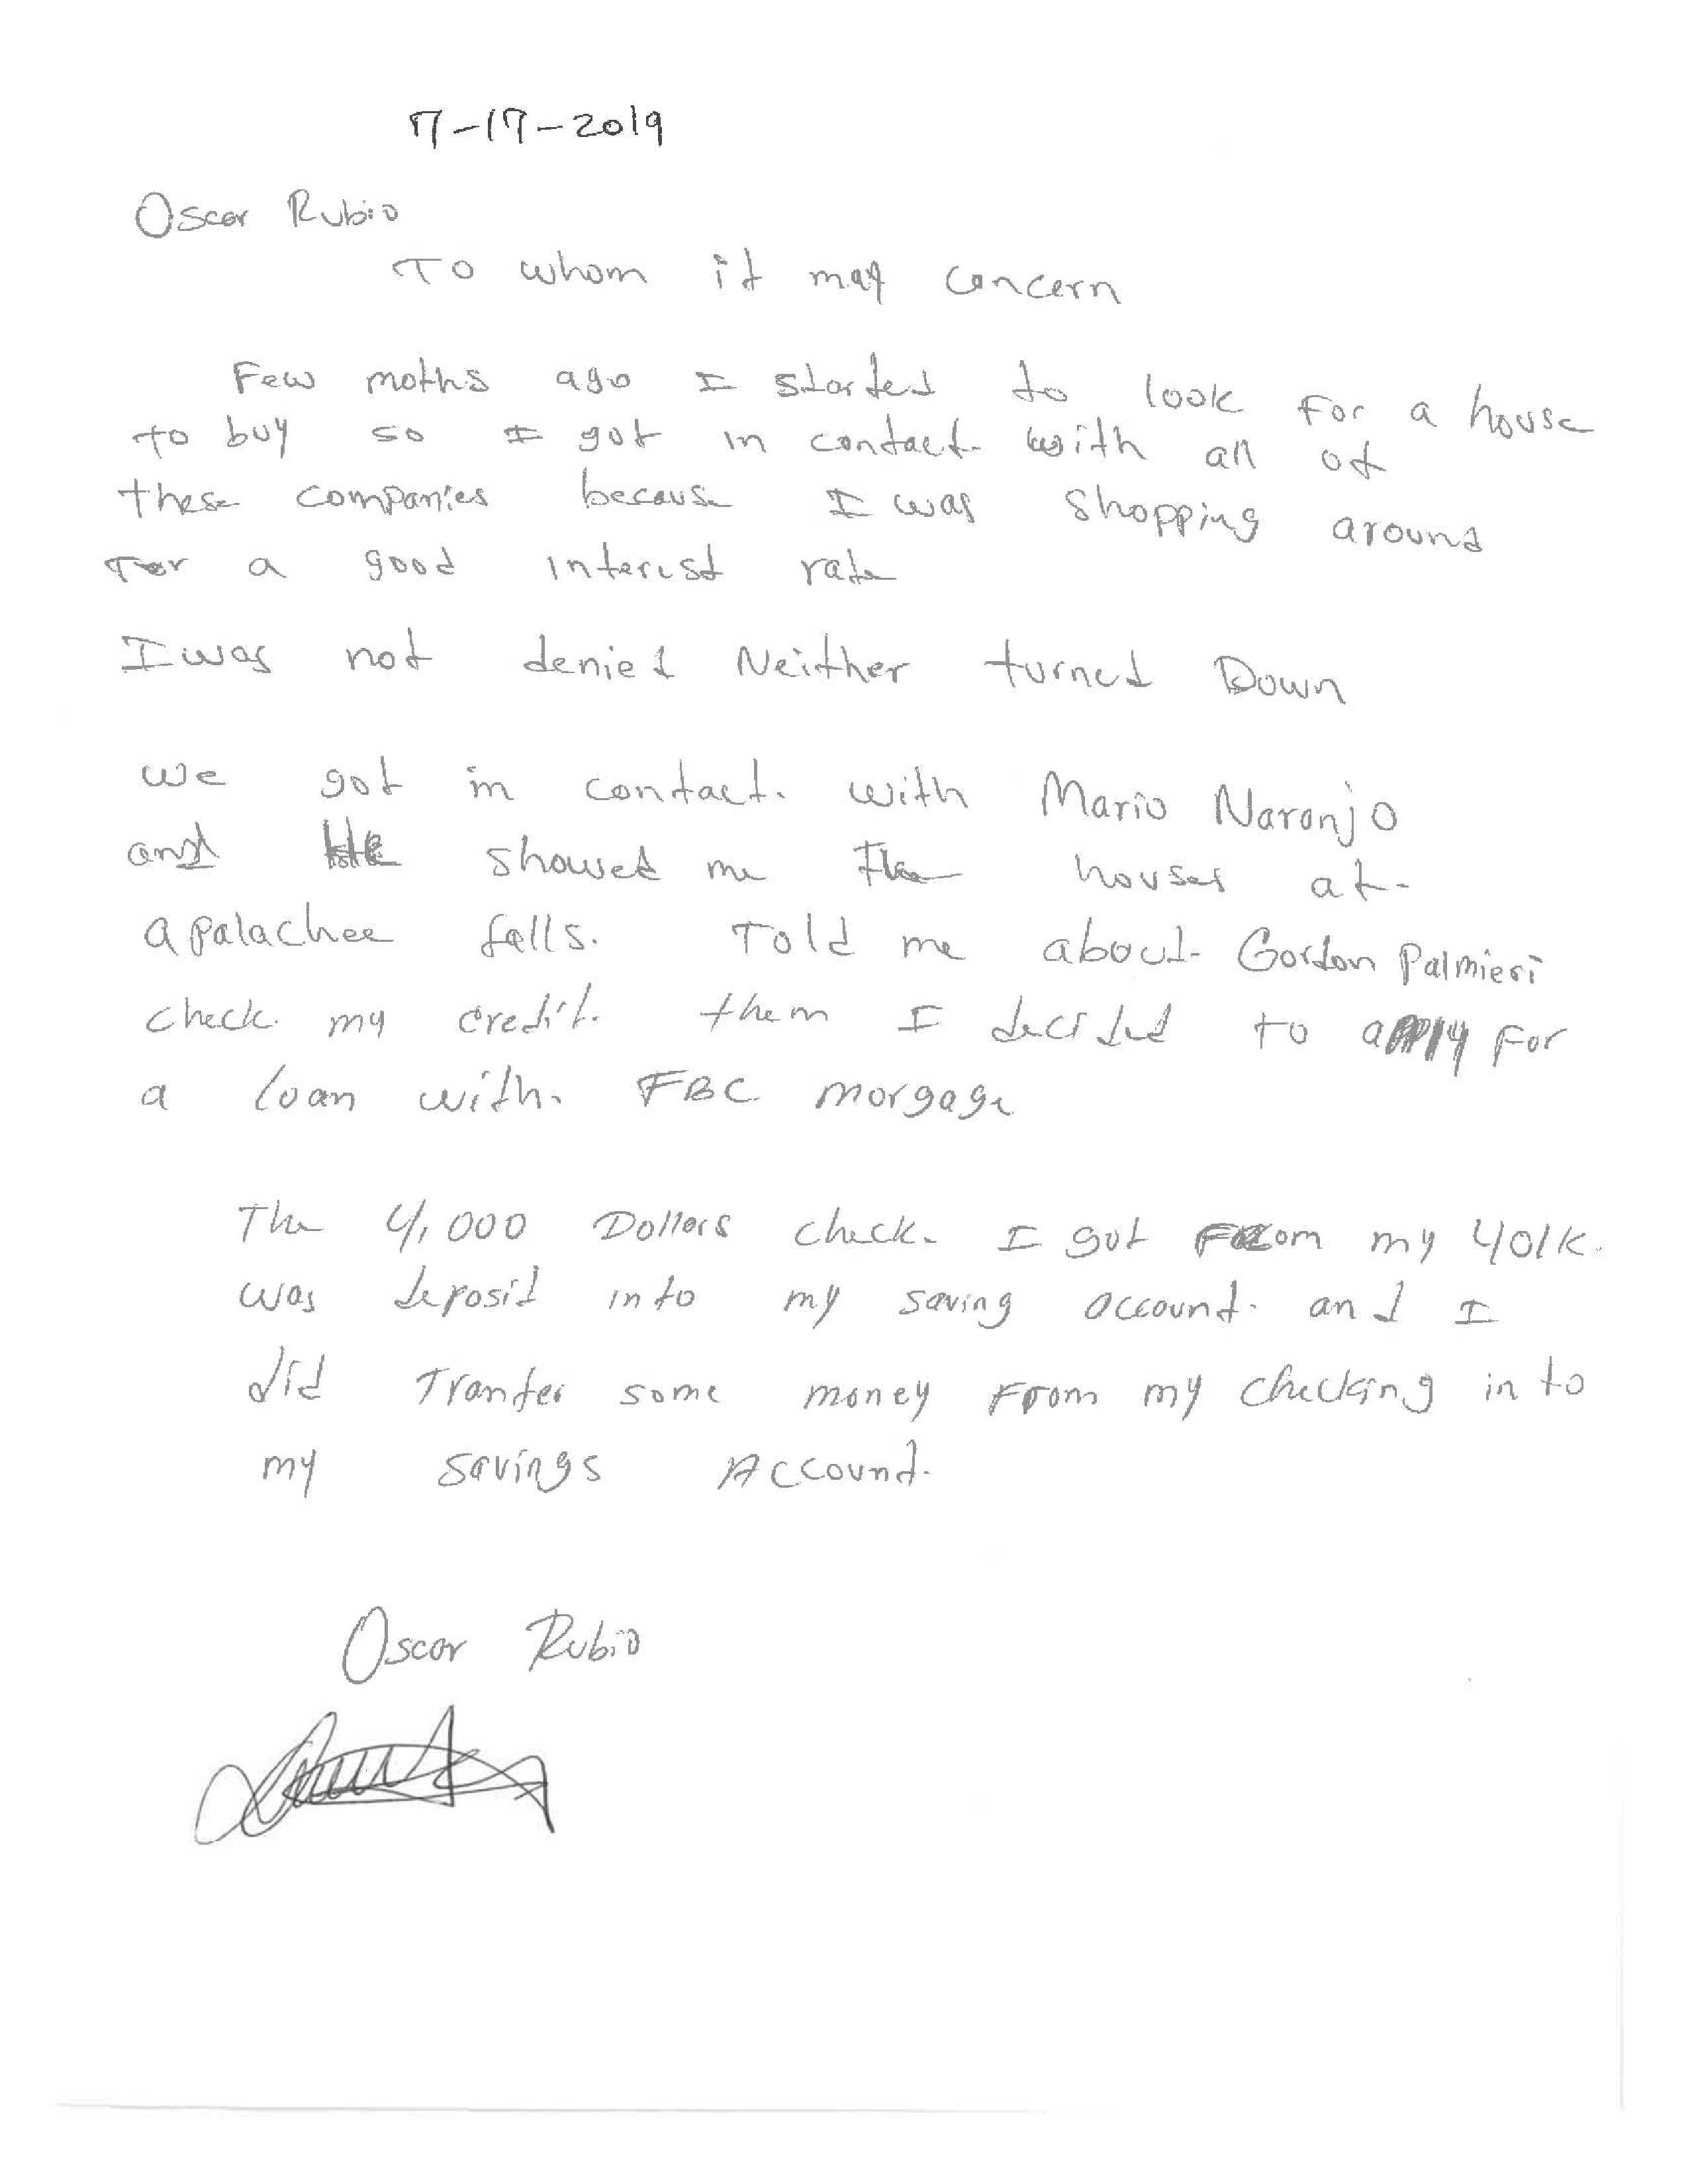 7-17-2019
Oscar Rubio
To whom it may concern
Few moths ago I started to look For a house
to buy so I got in contact with all of
these companies because I was shopping around
For a good interest rate
I was not denied Neither turned Down
we got in contact with Mario Naranjo
and He showed me The houses at
apalachee falls. Told me about Gordon Palmieri
check my credit. them I decided to apply For
a loan with FBC morgage
The 4,000 Dollars check I got From my 401K.
was deposit into my saving account. and I
did Tranfer some money From my checking in to
my savings Account.
Oscar Rubio